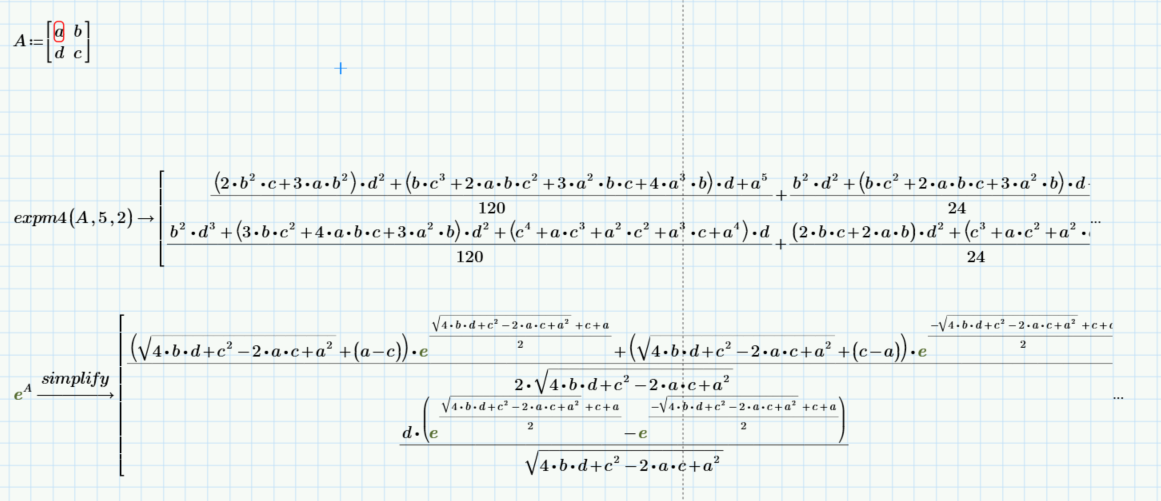 A:=[a b
d c]
expm4(A,5,2)→[((2·b²·c+3·a·b²)·d²+(b·c³+2·a·b·c²+3·a²·b·c+4·a³·b)·d+a⁵)/120 + (b²·d²+(b·c²+2·a·b·c+3·a²·b)·d
(b²·d³+(3·b·c²+4·a·b·c+3·a²·b)·d²+(c⁴+a·c³+a²·c²+a³·c+a⁴)·d)/120 + ((2·b·c+2·a·b)·d²+(c³+a·c²+a²· /24 ...
e^A simplify→[((√(4·b·d+c²−2·a·c+a²)+(a−c))·e^((√(4·b·d+c²−2·a·c+a²)+c+a)/2)+(√(4·b·d+c²−2·a·c+a²)+(c−a))·e^((−√(4·b·d+c²−2·a·c+a²)+c+ /2))/(2·√(4·b·d+c²−2·a·c+a²))
d·(e^((√(4·b·d+c²−2·a·c+a²)+c+a)/2)−e^((−√(4·b·d+c²−2·a·c+a²)+c+a)/2))/√(4·b·d+c²−2·a·c+a²) ...